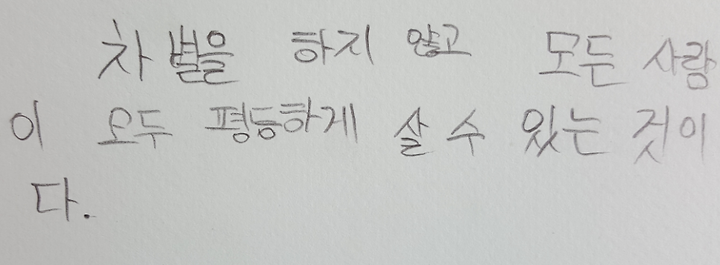 차별을 하지 않고 모든 사람
이 모두 평등하게 살 수 있는 것이
다.